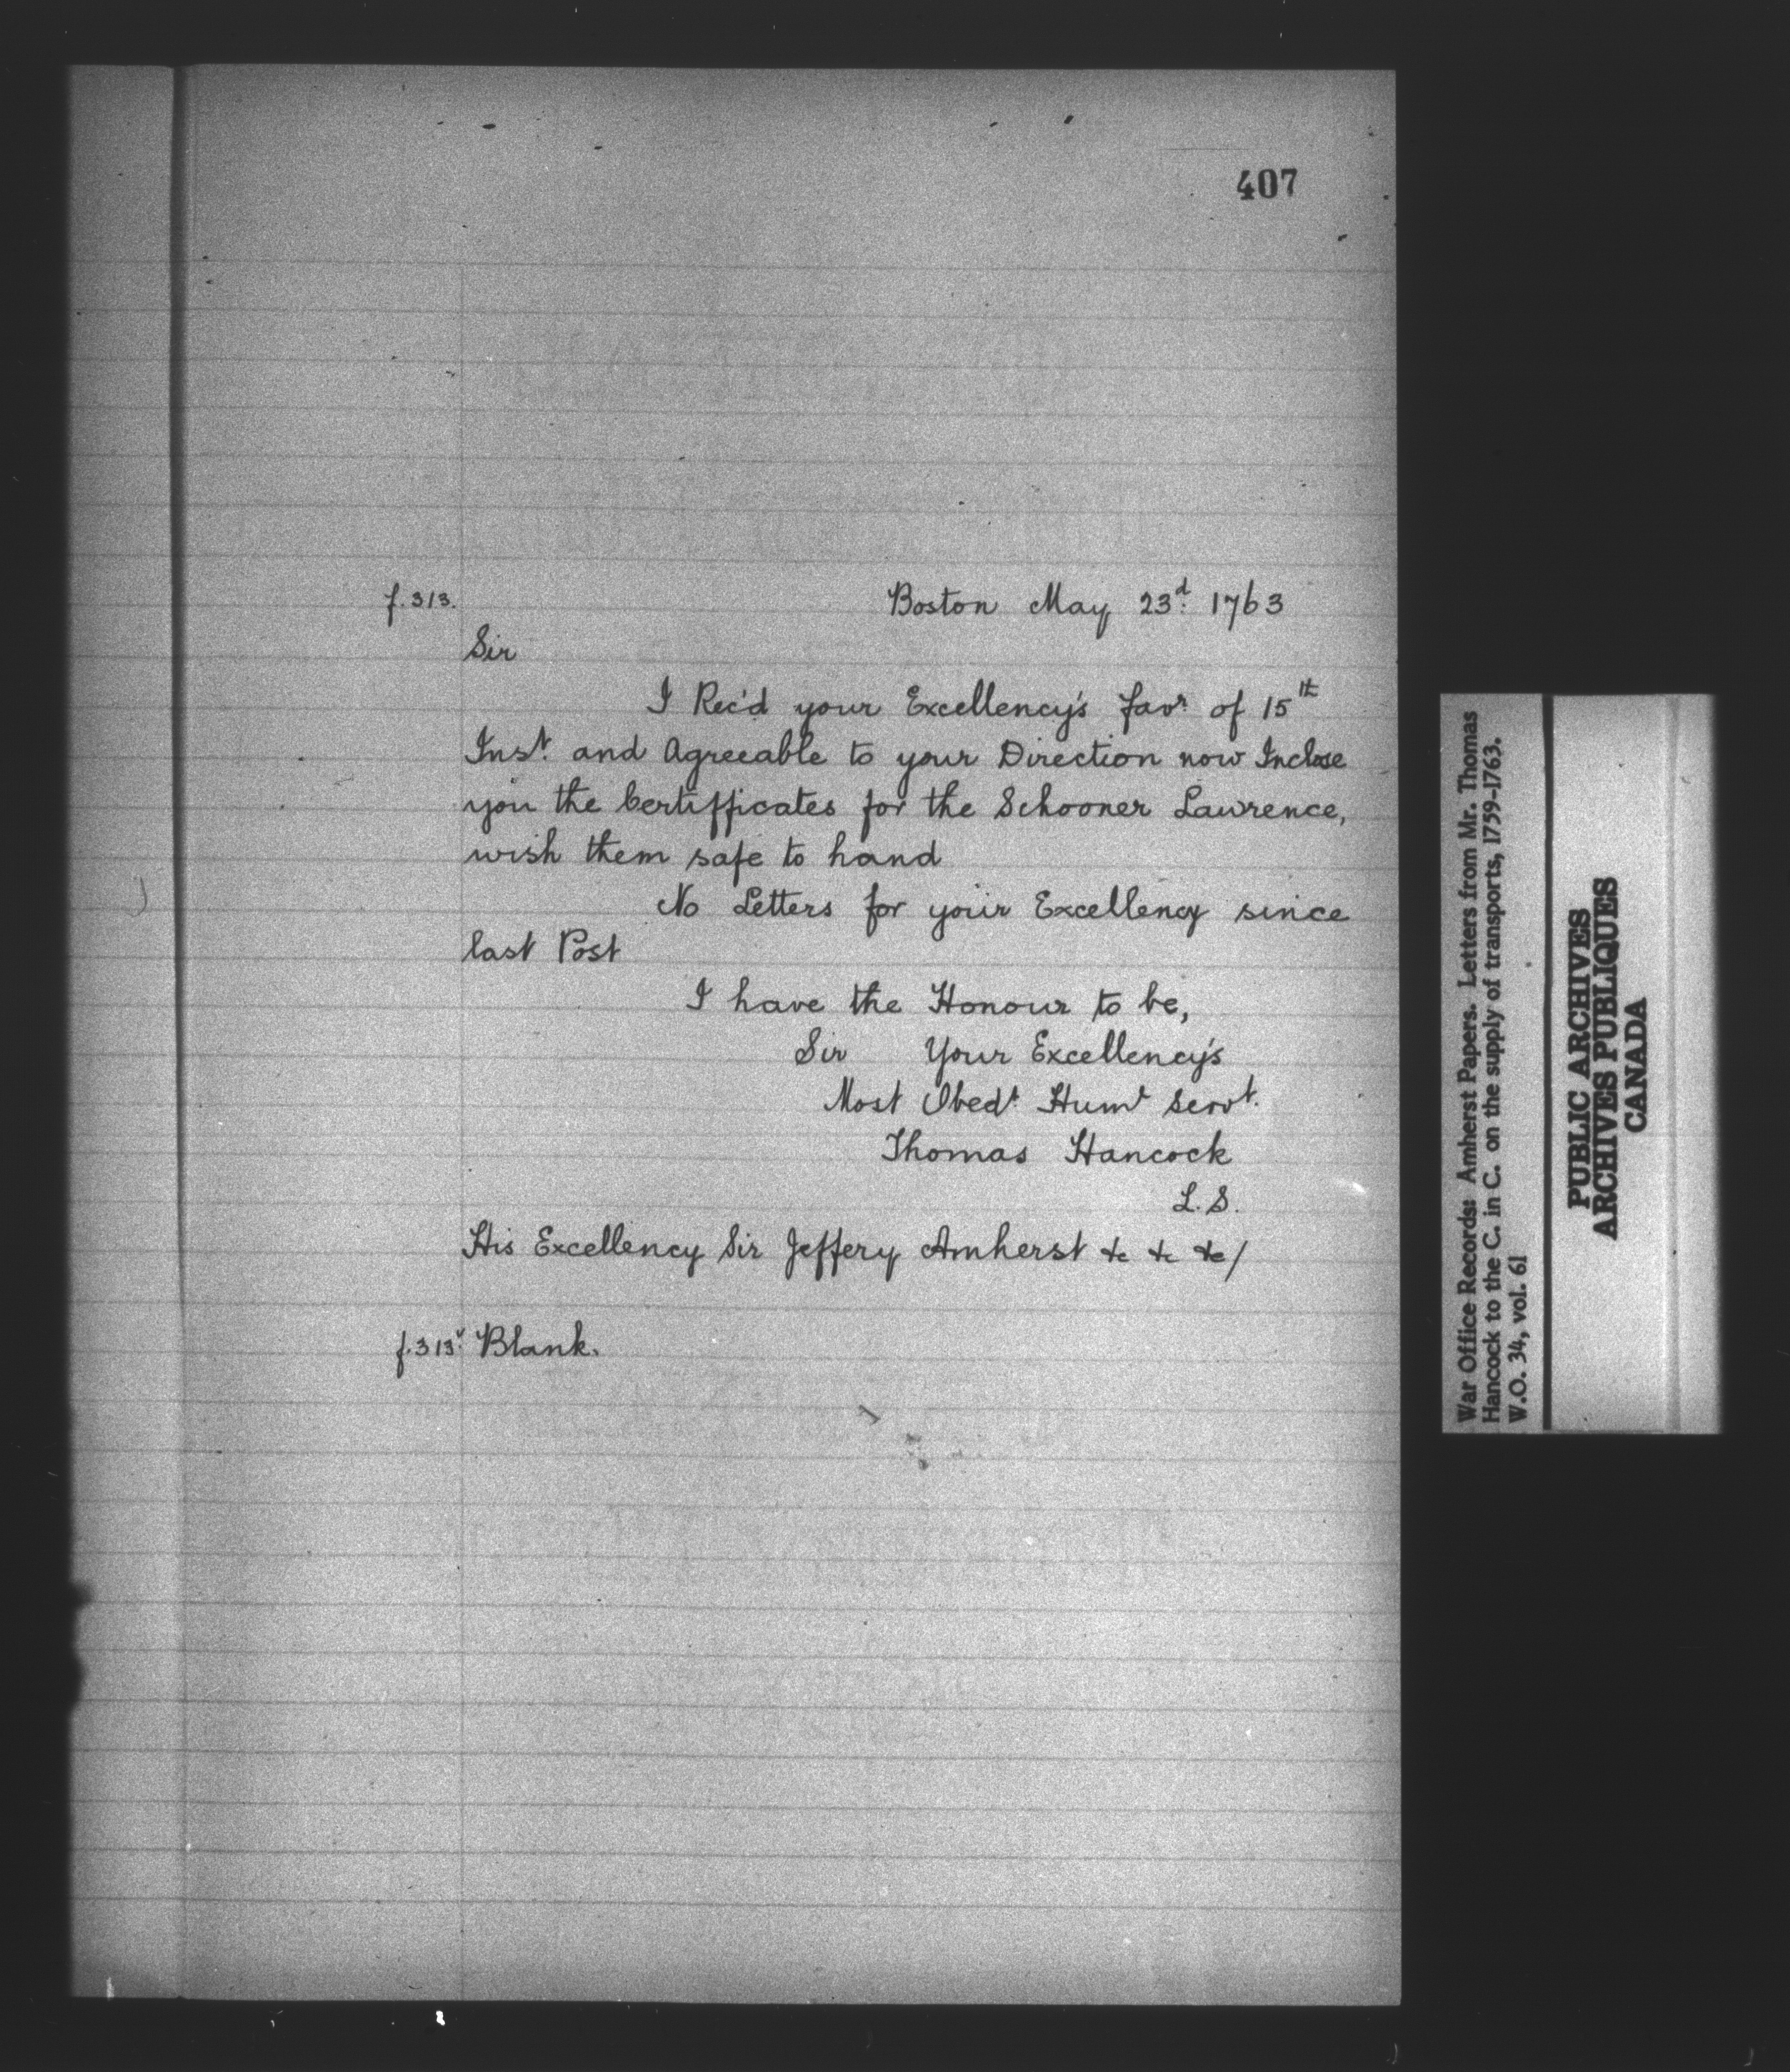 407
f.313.
Boston May 23d. 1763
Sir
I Rec'd your Excellency's favr. of 15th
Inst. and Agreeable to your Direction now Inclose
you the Certifficates for the Schooner Lawrence,
wish them safe to hand
No Letters for your Excellency since
last Post
I have the Honour to be,
Sir Your Excellency's
Most Obedt. Humt Servt.
Thomas Hancock
L.S.
His Excellency Sir Jeffery Amherst &c &c &c/
f.313v. Blank.
War Office Records: Amherst Papers. Letters from Mr. Thomas
Hancock to the C. in C. on the supply of transports, 1759-1763.
W.O. 34, vol. 61
PUBLIC ARCHIVES
ARCHIVES PUBLIQUES
CANADA